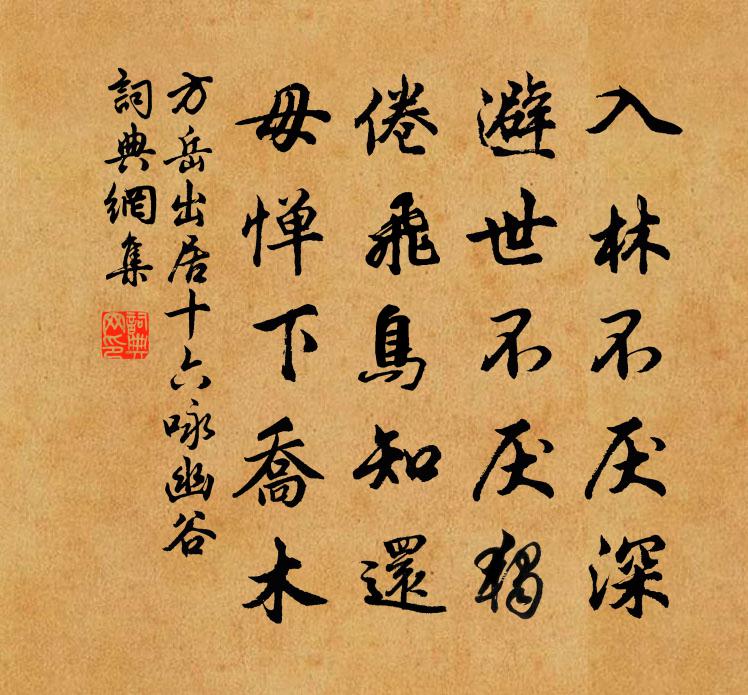 入林不厌深
避世不厌独
倦飛鳥知還
毋惮下喬木
方岳出居十六咏幽谷
詞典網集
詞典网印